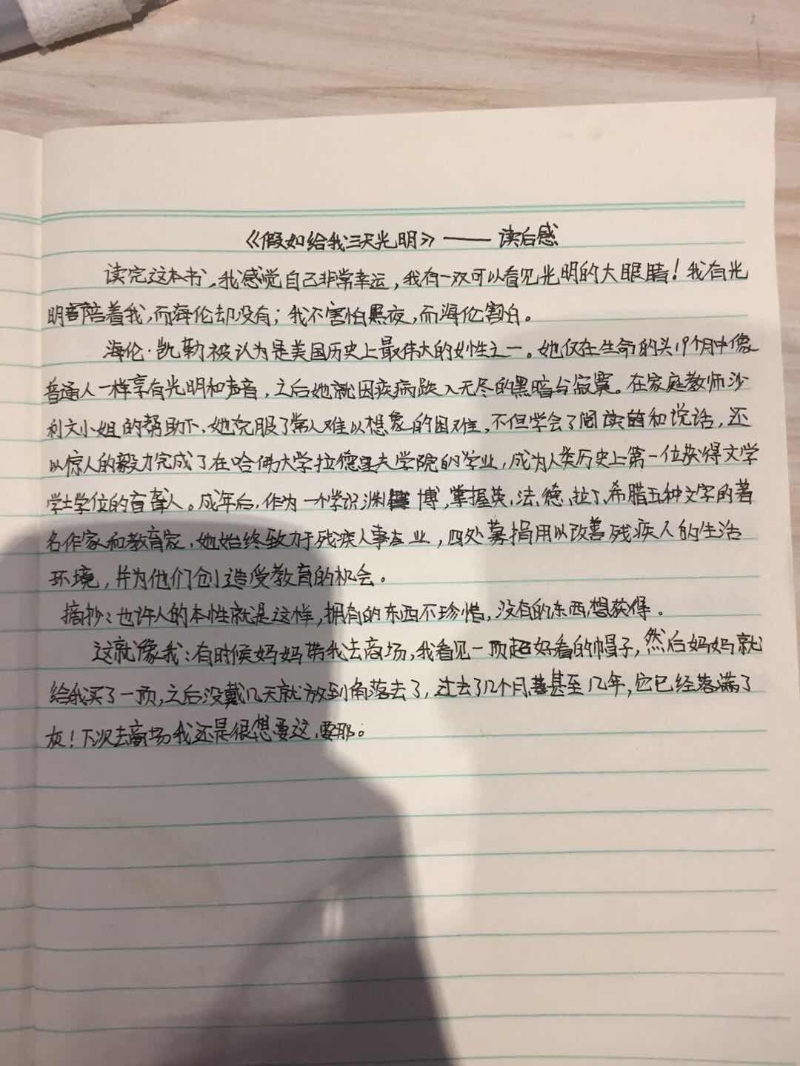 《假如给我三天光明》——读后感
读完这本书,我感觉自己非常幸运,我有一双可以看见光明的大眼睛!我有光
明陪着我,而海伦却没有;我不害怕黑夜,而海伦害怕。
海伦·凯勒被认为是美国历史上最伟大的女性之一。她仅在生命的头19个月中像
普通人一样享有光明和声音,之后她就因疾病跌入无尽的黑暗与寂寞。在家庭教师沙
利文小姐的帮助下,她克服了常人难以想象的困难,不但学会了阅读和说话,还
以惊人的毅力完成了在哈佛大学拉德克里夫学院的学业,成为人类历史上第一位获得文学
学士学位的盲聋人。成年后,作为一个学识渊博,掌握英、法、德、拉丁、希腊五种文字的著
名作家和教育家,她始终致力于残疾人事业,四处募捐用以改善残疾人的生活
环境,并为他们创造受教育的机会。
摘抄:也许人的本性就是这样,拥有的东西不珍惜,没有的东西想获得。
这就像我:有时候妈妈带我去商场,我看见一顶超好看的帽子,然后妈妈就
给我买了一顶,之后没戴几天就放到角落去了,过去了几个月甚至几年,它已经落满了
灰!下次去商场我还是很想要这,要那。